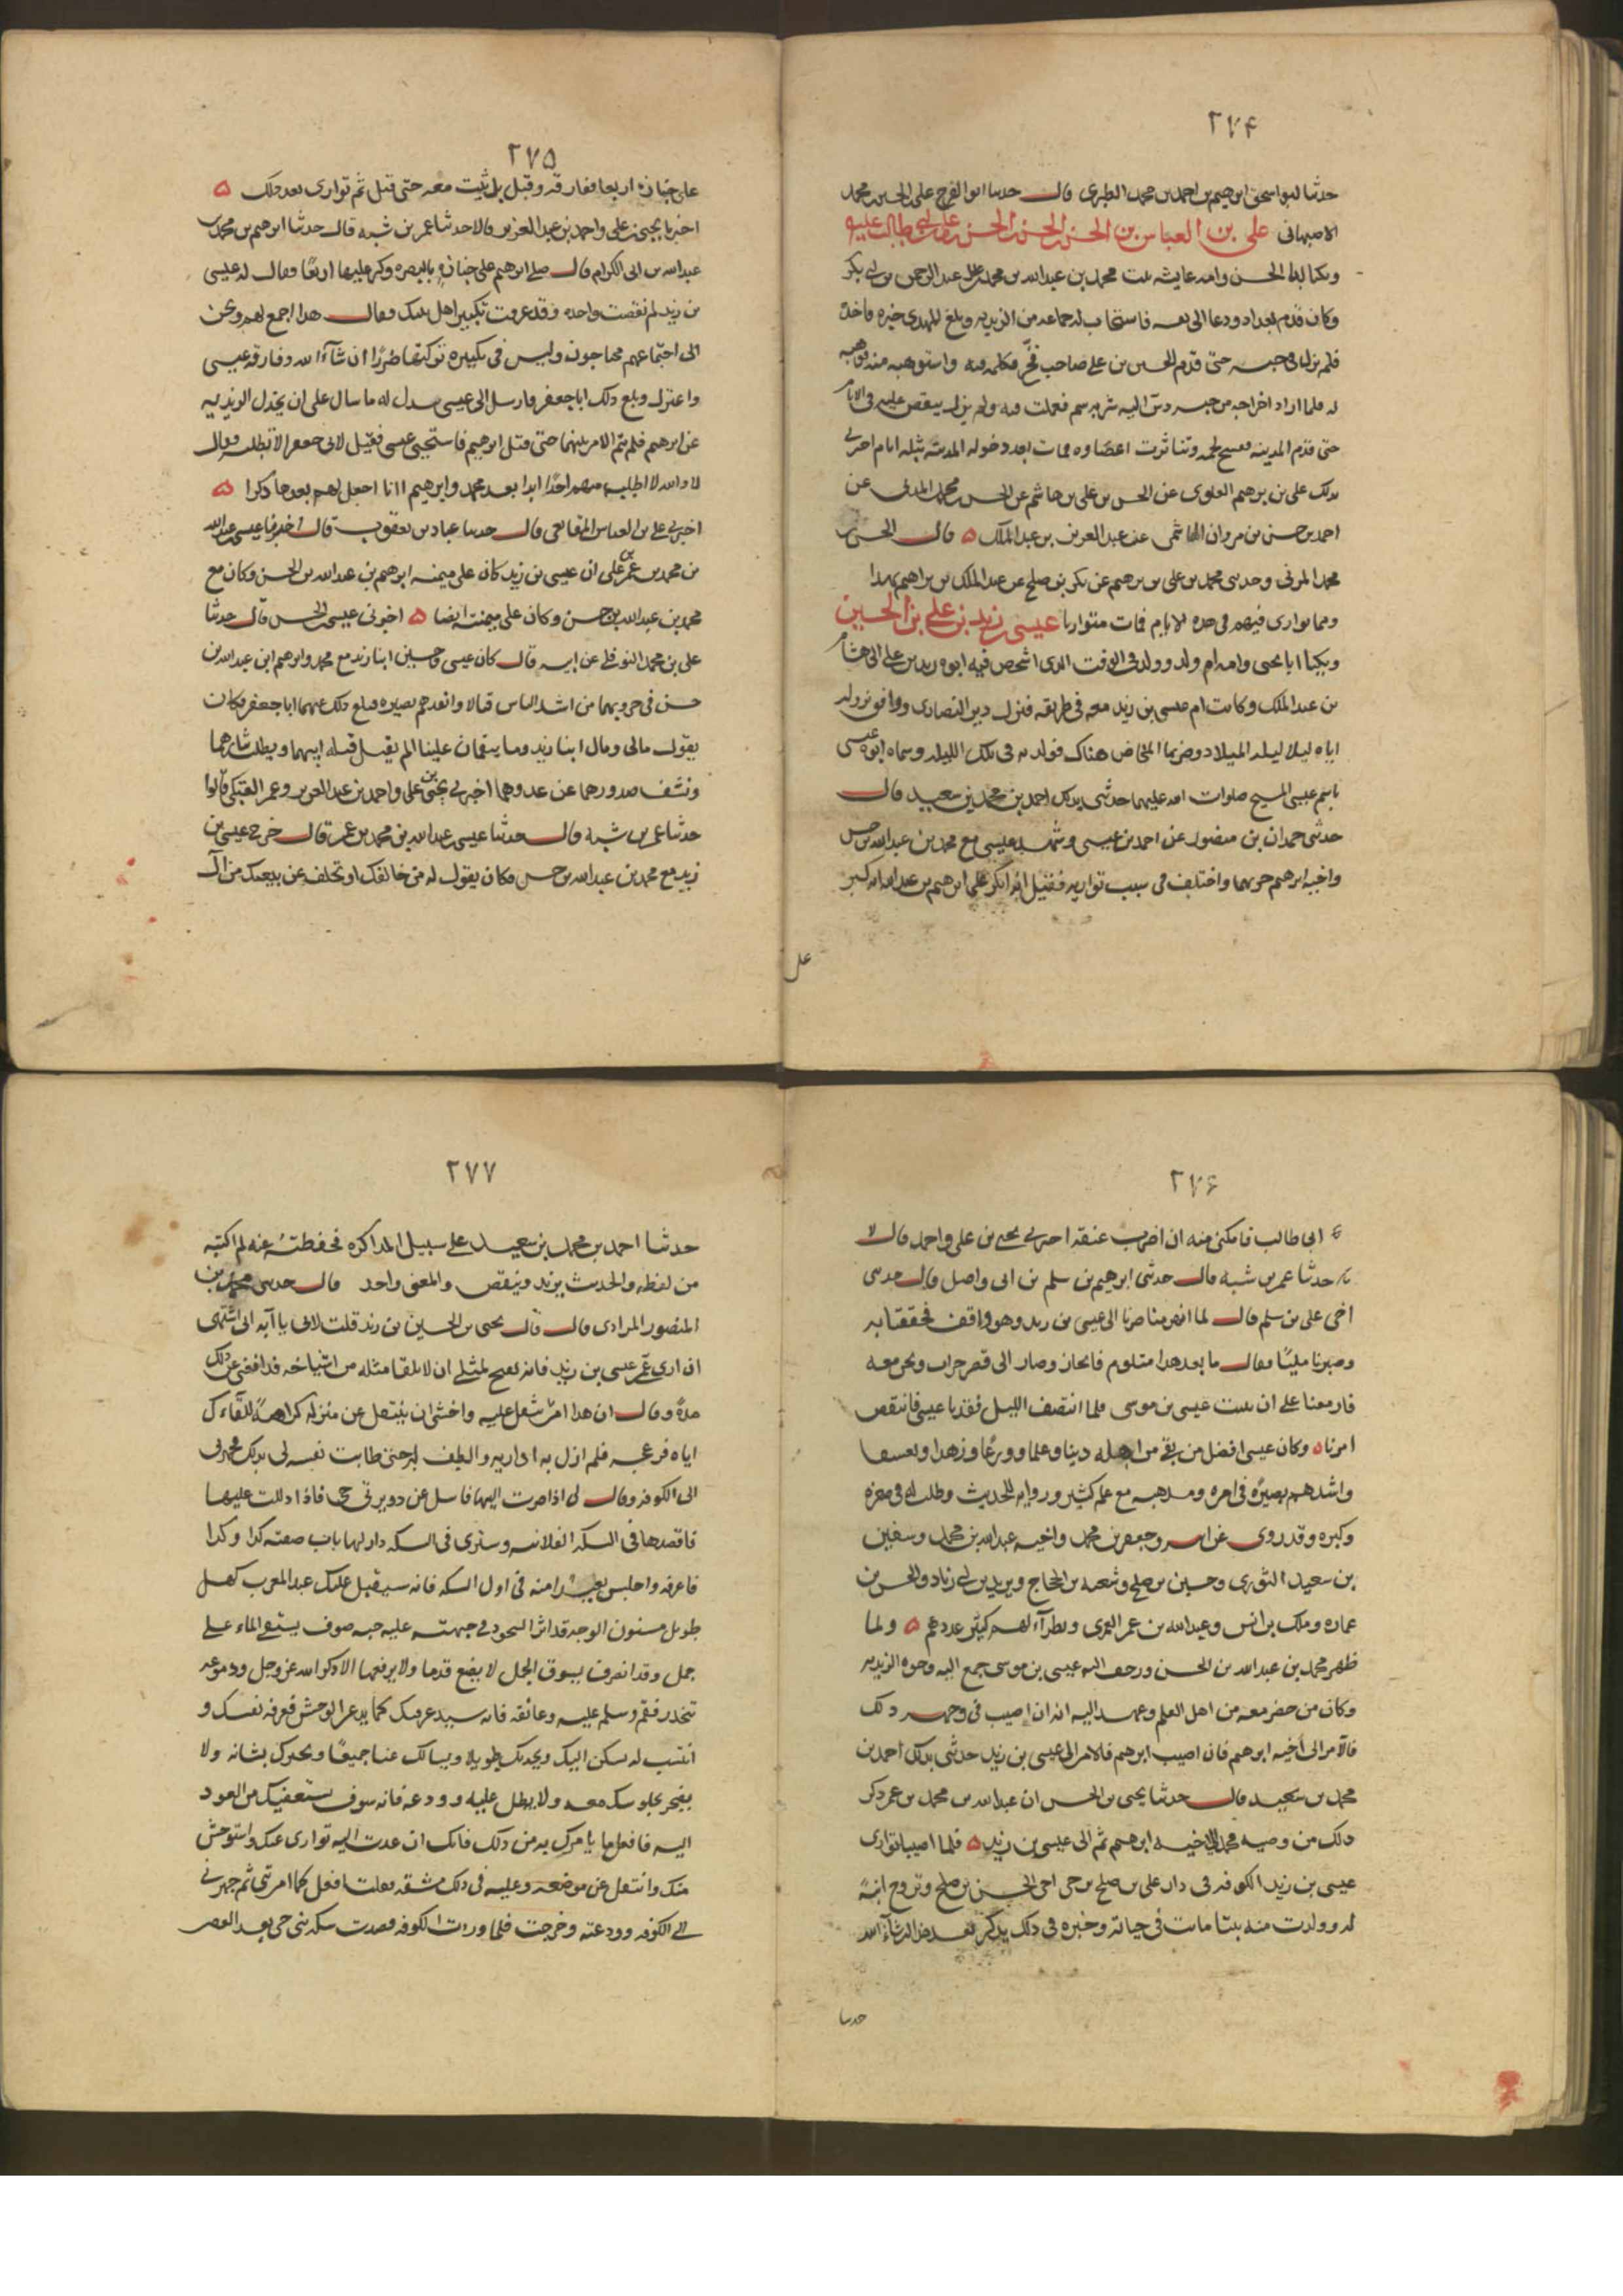 ٢٧٤
حدثنا ابو اسحق ابرهيم بن احمد بن محمد الطبرى قال حدثنا ابو الفرج على بن الحسين بن محمد
الاصبهانى على بن العباس بن الحسن بن الحسن بن الحسن بن على بن ابى طالب عليه
ويكنا ابا الحسن وامه عايشه بنت محمد بن عبدالله بن محمد بن عبد الرحمن بن ابى بكر
وكان قدم بغداد ودعا الى نفسه فاستجاب له جماعه من الزيديه وبلغ المهدى خبره فاخذه
فلم يزل فى حبسه حتى قدم الحسين بن على صاحب فخ فكلمه فيه واستوهبه منه فوهبه
له فلما اراد اخراجه من حبسه دس اليه شربه سم فعملت فيه ولم يزل ينقص عليه فى الايام
حتى قدم المدينه فتفسخ لحمه وتناثرت اعضاوه فمات بعد دخوله المدينه بثلثه ايام اخبرنى
بذلك على بن ابرهيم العلوى عن الحسن بن على بن هاشم عن الحسن بن محمد المزنى عن
احمد بن حسن بن مروان الهاشمى عن عبد العزيز بن عبد الملك ٥ قال الحسن بن
محمد المزنى وحدثنى محمد بن على بن ابرهيم عن بكر بن صلح عن عبد الملك بن ابراهيم بهذا
وممن توارى فيهم فى هذه الايام فمات متواريا عيسى بن زيد بن على بن الحسين
ويكنا ابا يحيى وامه ام ولد وولد فى الوقت الذى اشخص فيه ابوه زيد بن على الى هشام
بن عبد الملك وكانت ام عيسى بن زيد معه فى طريقه فنزل دير النصارى ووافق نزوله
اياه ليلا ليله الميلاد وضربها المخاض هناك فولدته فى تلك الليله وسماه ابوه عيسى
باسم عيسى المسيح صلوات الله عليهما حدثنى بذلك احمد بن محمد بن سعيد قال
حدثنى حمدان بن منصور عن احمد بن عيسى وشهد عيسى مع محمد بن عبدالله بن حسن
واخيه ابرهيم حربهما واختلف فى سبب تواريه فقيل انه انكر على ابرهيم بن عبدالله انه كبر
على
٢٧٥
على جنازه اربعا ففارقه وقيل بل ثبت معه حتى قتل ثم توارى بعد ذلك ٥
اخبرنا يحيى بن على واحمد بن عبد العزيز قالا حدثنا عمر بن شبه قال حدثنا ابرهيم بن محمد بن
عبدالله بن ابى الكرام قال صلى ابرهيم على جنازه بالبصره وكبر عليها اربعًا فقال له عيسى
بن زيد لم نقصت واحده وقد عرفت تكبير اهل بيتك فقال هذا اجمع لهم ونحن
الى اجتماعهم محتاجون وليس فى تكبيره تركتها ضررًا ان شآء الله ففارقه عيسى
واعتزل وبلغ ذلك ابا جعفر فارسل الى عيسى يبذل له ما سال على ان يخذل الزيديه
عن ابرهيم فلم يتم الامر بينهما حتى قتل ابرهيم فاستخفى عيسى فقيل لابى جعفر الا تطلبه فقال
لا والله لا اطلب منهم احدًا ابدا بعد محمد وابرهيم اانا اجعل لهم بعدها ذكرا ٥
اخبرنى على بن العباس المقانعى قال حدثنا عباد بن يعقوب قال اخبرنا عيسى بن عبدالله
بن محمد بن عمر بن على ان عيسى بن زيد كان على ميمنه ابرهيم بن عبدالله بن الحسن وكان مع
محمد بن عبدالله بن حسن وكان على ميمنته ايضا ٥ اخبرنى عيسى بن الحسن قال حدثنا
على بن محمد النوفلى عن ابيه قال كان عيسى وحسين ابنا زيد مع محمد وابرهيم ابنى عبدالله بن
حسن فى حروبهما من اشد الناس قتالا وانفذهم بصيره فبلغ ذلك عنهما ابا جعفر فكان
يقول مالى ومال ابنا زيد وما ينقمان علينا الم نقتل قتله ابيهما ويطلب ثارهما
ونشف صدورهما عن عدوهما اخبرنى يحيى بن على واحمد بن عبد العزيز وعمر العتكى قالوا
حدثنا عمر بن شبه قال حدثنا عيسى بن عبدالله بن محمد بن عمر قال خرج عيسى بن
زيد مع محمد بن عبدالله بن حسن فكان يقول له من خالفك او تخلف عن بيعتك من آل
٢٧٦
ابى طالب فامكنى منه ان اضرب عنقه اخبرنى يحيى بن على واحمد قال لا
نا حدثنا عمر بن شبه قال حدثنى ابرهيم بن سلم بن ابى واصل قال حدثنى
اخى على بن سلم قال لما انهزمنا صرنا الى عيسى بن زيد وهو واقف فحففنا به
وصبرنا مليًا فقال ما بعد هذا متلوم فانحاز وصار الى قصر خراب ونحن معه
فازمعنا على ان نبيت عيسى بن موسى فلما انتصف الليل فقدنا عيسى فانتقض
امرنا ٥ وكان عيسى افضل من بقى من اهله دينا وعلما وورعًا وزهدا وتقشفا
واشدهم بصيرة فى امره ومذهبه مع علم كثير وروايه للحديث وطلب له فى صغره
وكبره وقد روى عن ابيه وجعفر بن محمد واخيه عبدالله بن محمد وسفين
بن سعيد الثورى وحسين بن صلح وشعبه بن الحجاج ويزيد بن ابى زياد والحسن بن
عماره وملك بن انس وعبدالله بن عمر العمرى ونظرآء لهم كثير عددهم ٥ ولما
ظهر محمد بن عبدالله بن الحسن وزحف اليه عيسى بن موسى جمع اليه وجوه الزيديه
وكان من حضر معه من اهل العلم وعهد اليه انه ان اصيب فى وجهه ذلك
فالامر الى اخيه ابرهيم فان اصيب ابرهيم فالامر الى عيسى بن زيد حدثنى بذلك احمد بن
محمد بن سعيد قال حدثنا يحيى بن الحسن ان عبدالله بن محمد بن عمر ذكر
ذلك من وصيه محمد الى اخيه ابرهيم ثم الى عيسى بن زيد ٥ فلما اصيبا توارى
عيسى بن زيد الكوفه فى دار على بن صلح بن حى اخى الحسن بن صلح وتزوج ابنة
له وولدت منه بنتا ماتت فى حياته وخبره فى ذلك يذكر بعد هذا ان شآء الله
حدثنا
٢٧٧
حدثنا احمد بن محمد بن سعيد على سبيل المذاكره فحفظته عنه لم اكتبه
من لفظه والحديث يزيد وينقص والمعنى واحد قال حدثنى محمد بن
المنصور المرادى قال قال يحيى بن الحسين بن زيد قلت لابى يا آبه انى اشتهى
ان ارى عمى عيسى بن زيد فانه يقبح بمثلى ان لا يلقا مثله من اشياخه فدافعنى عن ذلك
مدة وقال ان هذا امر يثقل عليه واخشى ان ينتقل عن منزله كراهية للقآءك
اياه فزعجه فلم ازل به اداريه والطف له حتى طابت نفسه لى بذلك فجهزنى
الى الكوفه وقال لى اذا صرت اليها فاسل عن دور بنى حى فاذا دللت عليها
فاقصدها فى السكه الفلانيه وسترى فى السكه دار لها باب صفته كذا وكذا
فاعرفه واجلس بعيدا منه فى اول السكه فانه سيقبل عليك عند المغرب كهل
طويل مسنون الوجه قد اثر السجود فى جبهته عليه جبه صوف يستقى الماء على
جمل وقد انصرف يسوق الجمل لا يضع قدما ولا يرفعها الا ذكر الله عز وجل ودموعه
تنحدر فقم وسلم عليه وعانقه فانه سيذعر منك كما يذعر الوحش فعرفه نفسك و
انتسب له يسكن اليك ويحدثك طويلا ويسالك عنا جميعًا ويخبرك بشانه ولا
يضجر بجلوسك معه ولا يطل عليه وودعه فانه سوف يستعفيك من العود
اليه فافعل ما يامرك به من ذلك فانك ان عدت اليه توارى عنك واستوحش
منك وانتقل عن موضعه وعليه فى ذلك مشقه فقلت افعل كما امرتنى ثم جهزنى
الى الكوفه وودعته وخرجت فلما وردت الكوفه قصدت سكه بنى حى بعد العصر